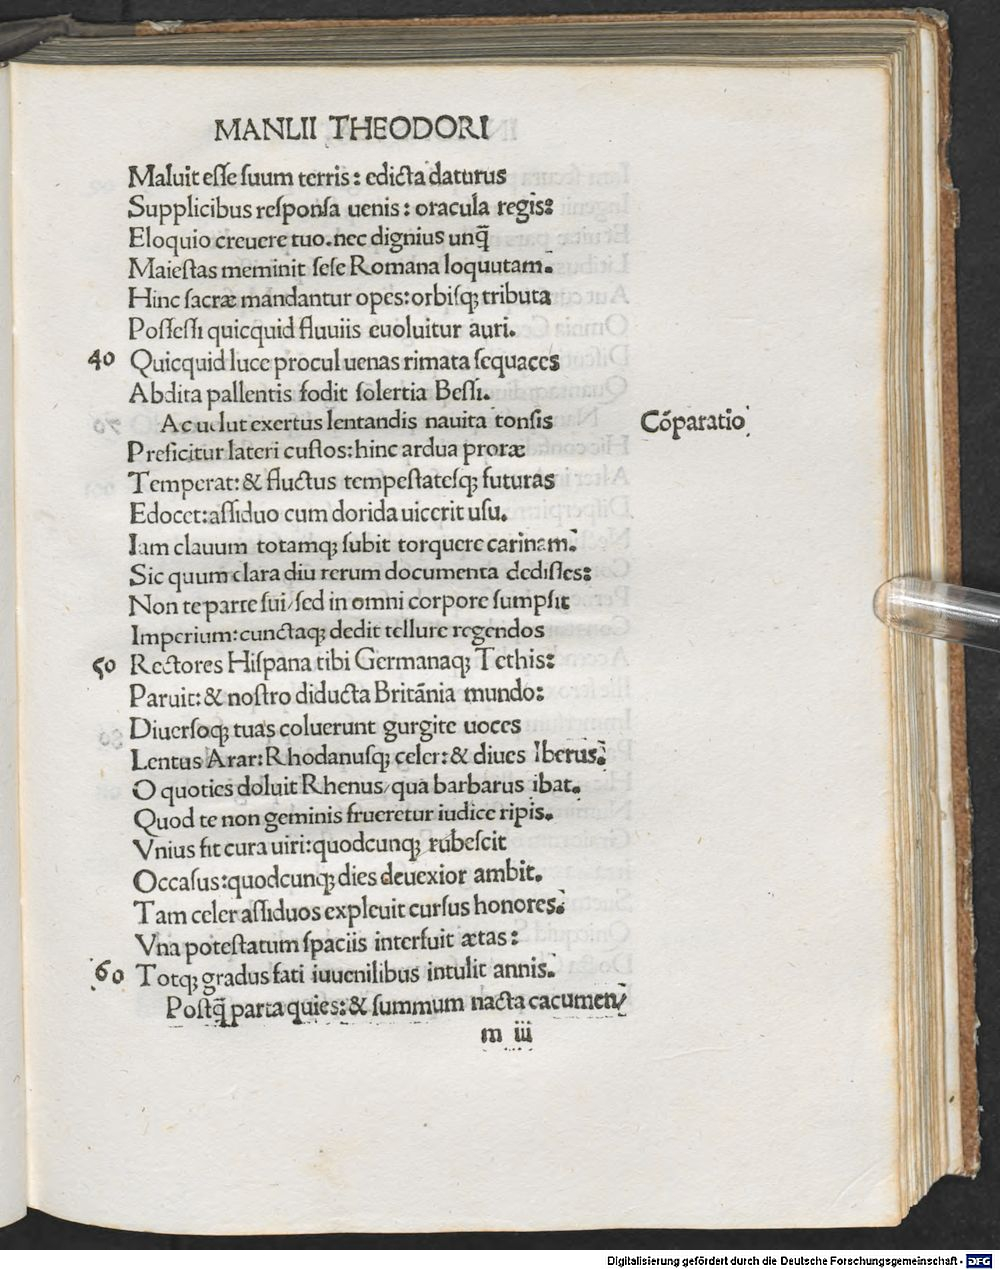 MANLII THEODORI
Maluit eſſe ſuum terris: edicta daturus
Supplicibus reſponſa uenis: oracula regis:
Eloquio creuere tuo. nec dignius unq̄
Maieſtas meminit ſeſe Romana loquutam.
Hinc ſacræ mandantur opes: orbiſq; tributa
Poſſeſſi quicquid fluuiis euoluitur auri.
40 Quicquid luce procul uenas rimata ſequaces
Abdita pallentis fodit ſolertia Beſſi.
Ac uelut exertus lentandis nauita tonſis
Cōparatio
Preficitur lateri cuſtos: hinc ardua proræ
Temperat: & fluctus tempeſtateſq; futuras
Edocet: aſſiduo cum dorida uicerit uſu.
Iam clauum totamq; ſubit torquere carinam.
Sic quum clara diu rerum documenta dediſſes:
Non te parte ſui/ ſed in omni corpore ſumpſit
Imperium: cunctaq; dedit tellure regendos
50 Rectores Hiſpana tibi Germanaq; Tethis:
Paruit: & noſtro diducta Britānia mundo:
Diuerſoq; tuas coluerunt gurgite uoces
Lentus Arar: Rhodanuſq; celer: & diues Iberus.
O quoties doluit Rhenus/ qua barbarus ibat.
Quod te non geminis frueretur iudice ripis.
Vnius fit cura uiri: quodcunq; rubeſcit
Occaſus: quodcunq; dies deuexior ambit.
Tam celer aſſiduos expleuit curſus honores.
Vna poteſtatum ſpaciis interfuit ætas:
60 Totq; gradus fati iuuenilibus intulit annis.
Poſtq̄ parta quies: & ſummum nacta cacumen/
m iii
Digitalisierung gefördert durch die Deutsche Forschungsgemeinschaft - DFG